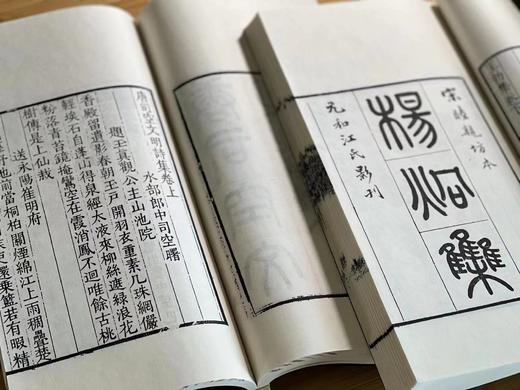 唐司空文明詩集卷上
水部郎中司空曙
題玉真觀公主山池院
香殿留遺影春朝玉戶開羽衣重素几珠網儼
輕埃石自蓬山得泉經太液來柳絲遮綠浪花
粉落青苔鏡掩鸞空在霞消鳳不迴唯餘古桃
樹傳是上仙栽
送永陽崔明府
地前當桐柏關連綿江上雨稠疊楚
還乘籃若有暇精
宋睦親坊本
楊炯集
元和江氏影刊